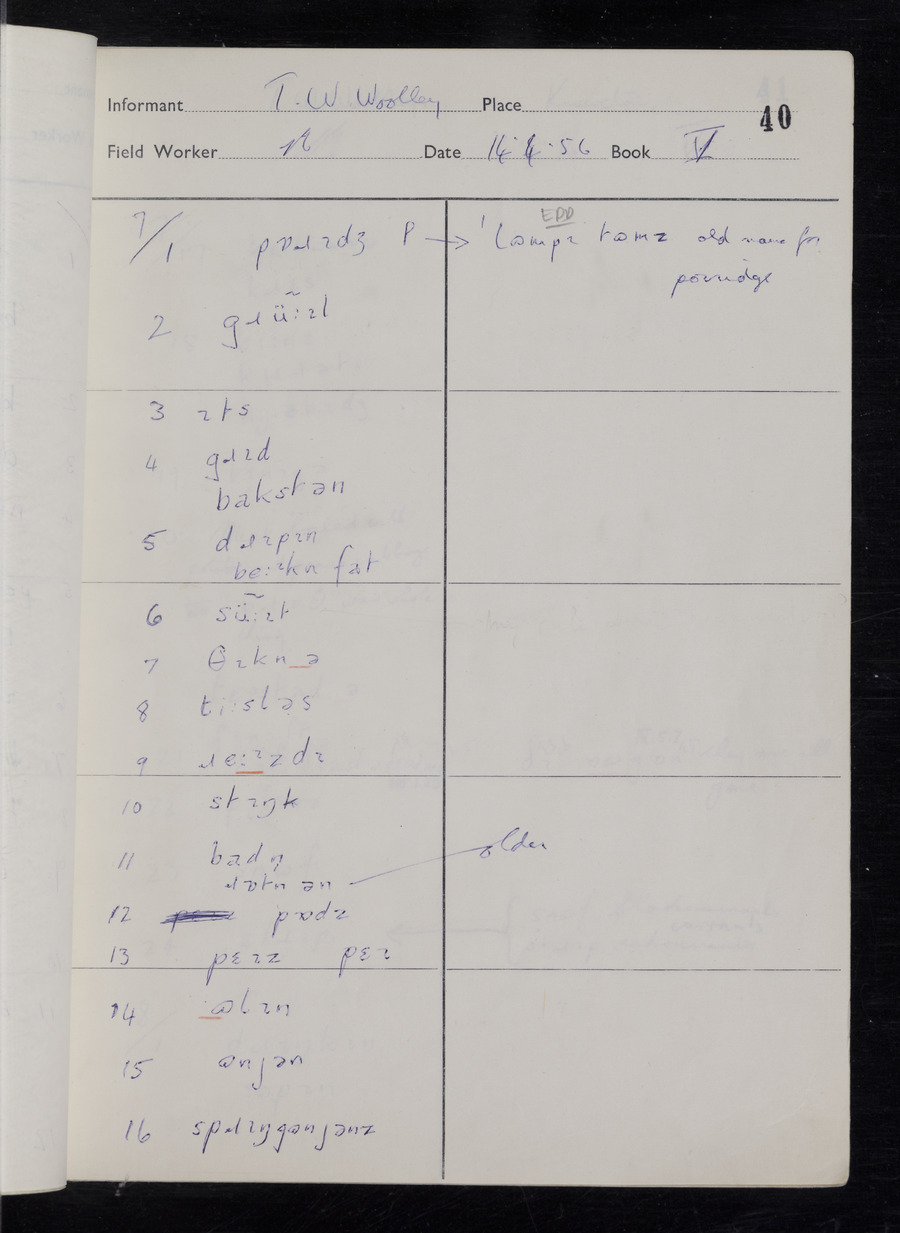 Informant T. W. Woolley Place
40
Field Worker Date 14·4·56 Book V
7/1 pɒɹɪdʒ P → ˈlɒmpɪ tɒmz old name for
EDD
porridge
2 gɹü̃:ɪl
3 ɪts
4 gɹɪd
bakstən
5 dɹɪpɪn
be:ɪkn fat
6 sü̃:ɪt
7 θɪkn_ə
8 ti:sləs
9 ɹe:ɪzdɪ
10 stɪŋk
11 badn̩
ɹɒtn ən older
12 pɒdz
13 pɛɪz pɛɪ
14 ɒlɪn
15 ɒnjən
16 spɹɪŋgɒnjənz